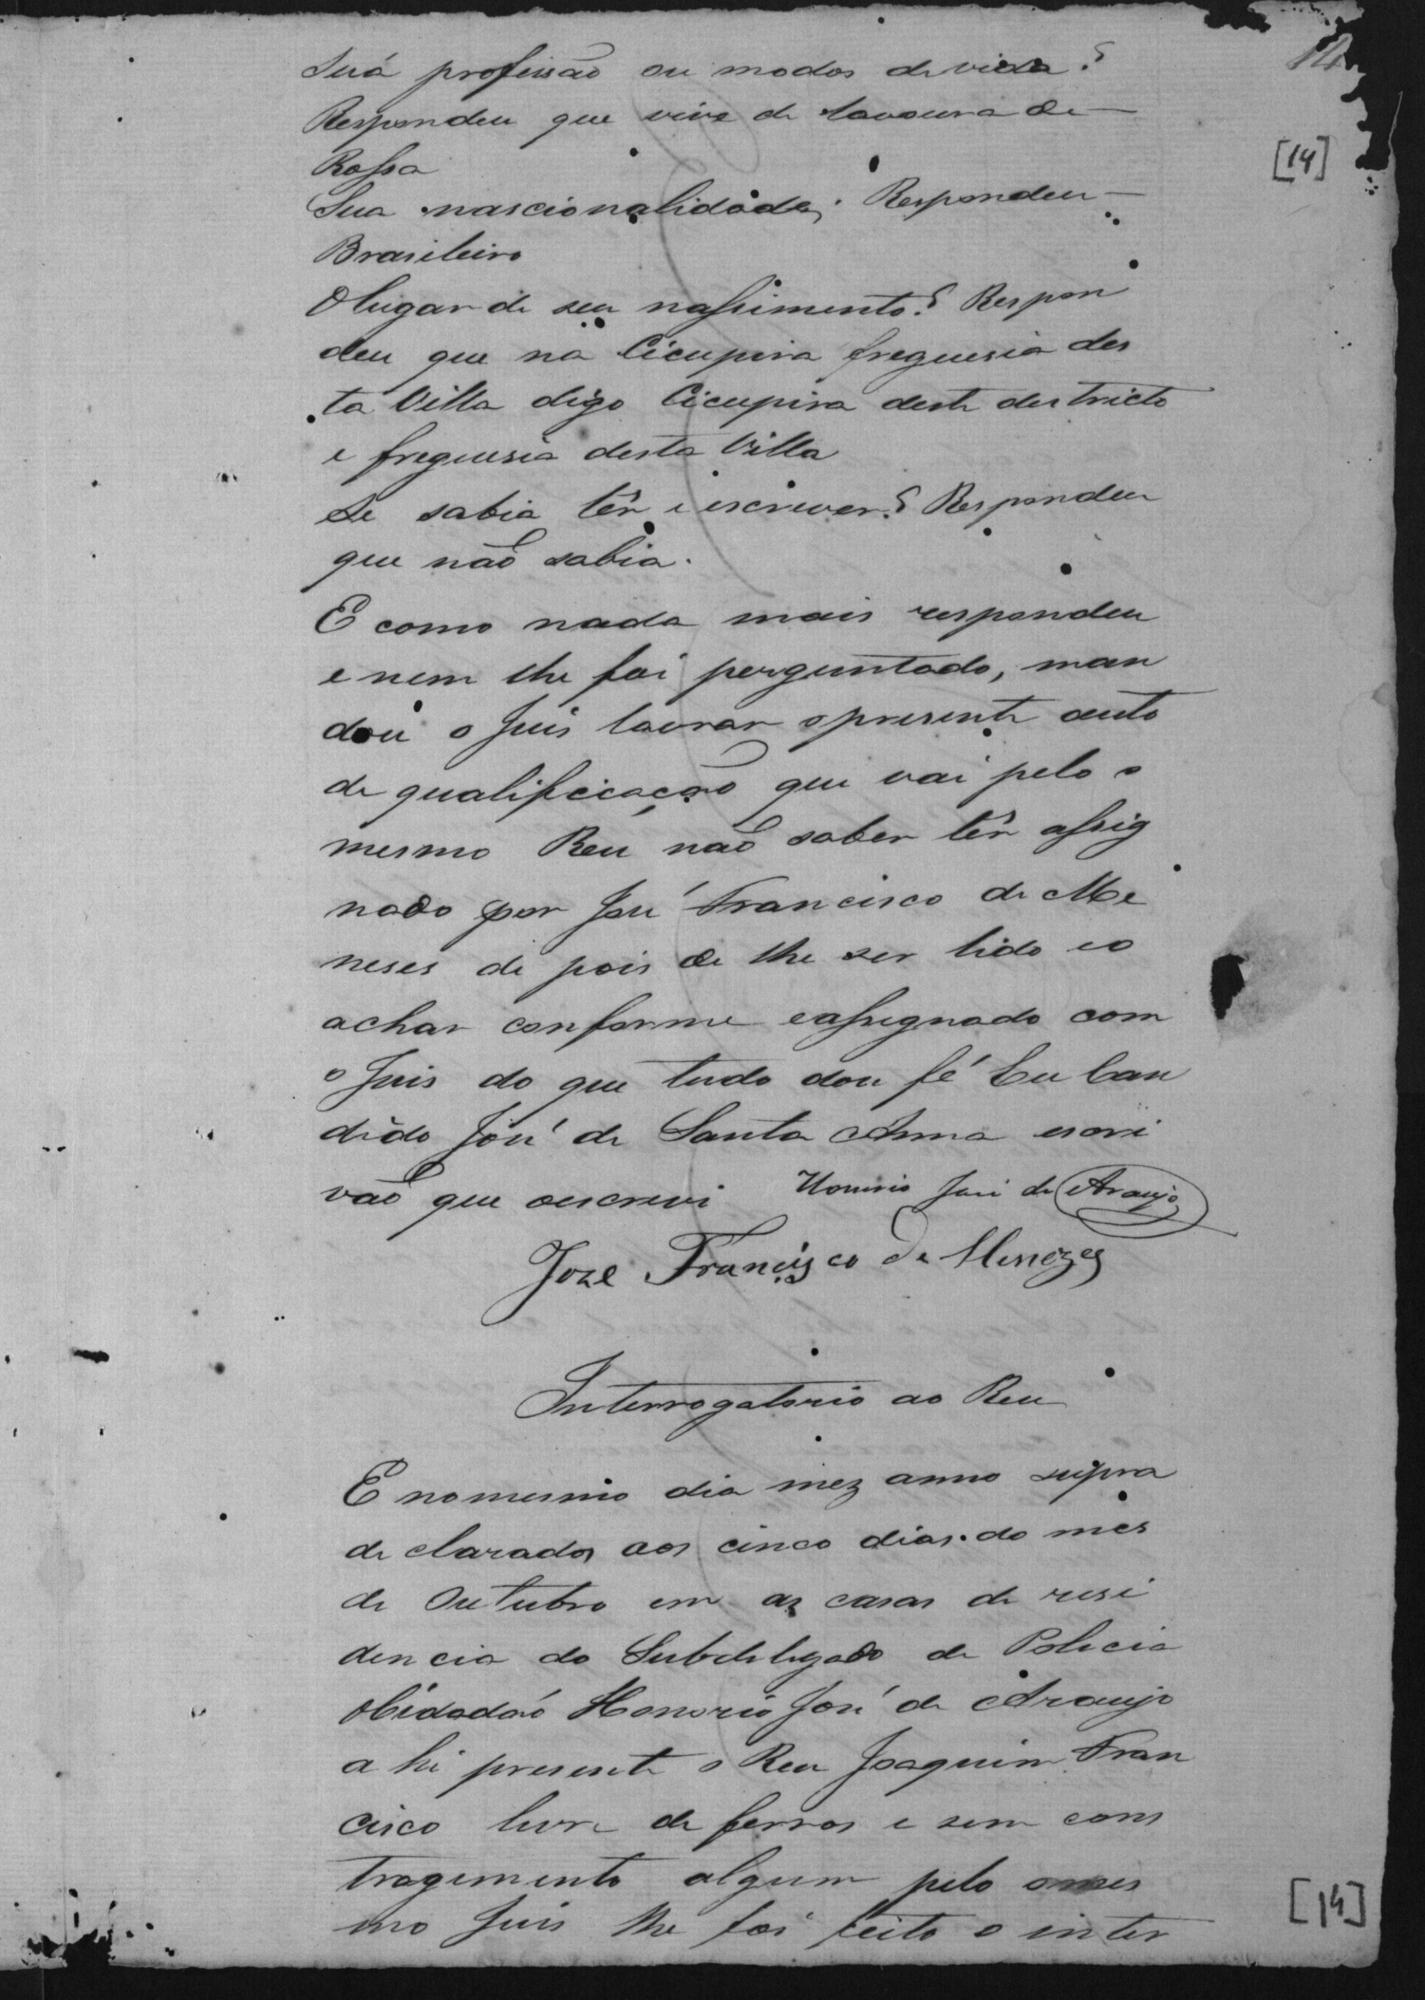 14
[14]
Suá profissão ou modos de vida?
Respondeu que vive de lavoura de
Rossa
Sua nascionalidade, Respondeu
Brasileiro
O lugar de seu nassimento? Respon
deu que na Cicupira freguesia des
ta Villa digo Cicupira deste destricto
e freguesia desta Villa
Se sabia lêr e escrever? Respondeu
que não sabia.
E como nada mais respondeu
e nem lhe foi perguntado, man
dou o Juis lavrar o presente auto
de qualificação que vai pelo o
mesmo Reu não saber lêr assig
nado por José Francisco de Me
neses de pois de lhe ser lido eo
achar conforme eassignado com
o Juis do que tudo dou fé Eu Can
dido José de Santa Anna escri
vão que oescrevi Honorio José de Araujo
Joze Francisco de Menezes
Interrogatorio ao Reu
E nomesmo dia mez anno supra
de clarados aos cinco dias do mes
de Outubro em as casas de resi
dencia do Subdelegado de Policia
oCidadão Honorio José de Araujo
a hi presente o Reu Joaquim Fran
cisco livre de ferros e sem cons
tragimento algum pelo omes
mo Juis lhe foi feito o inter
[14]